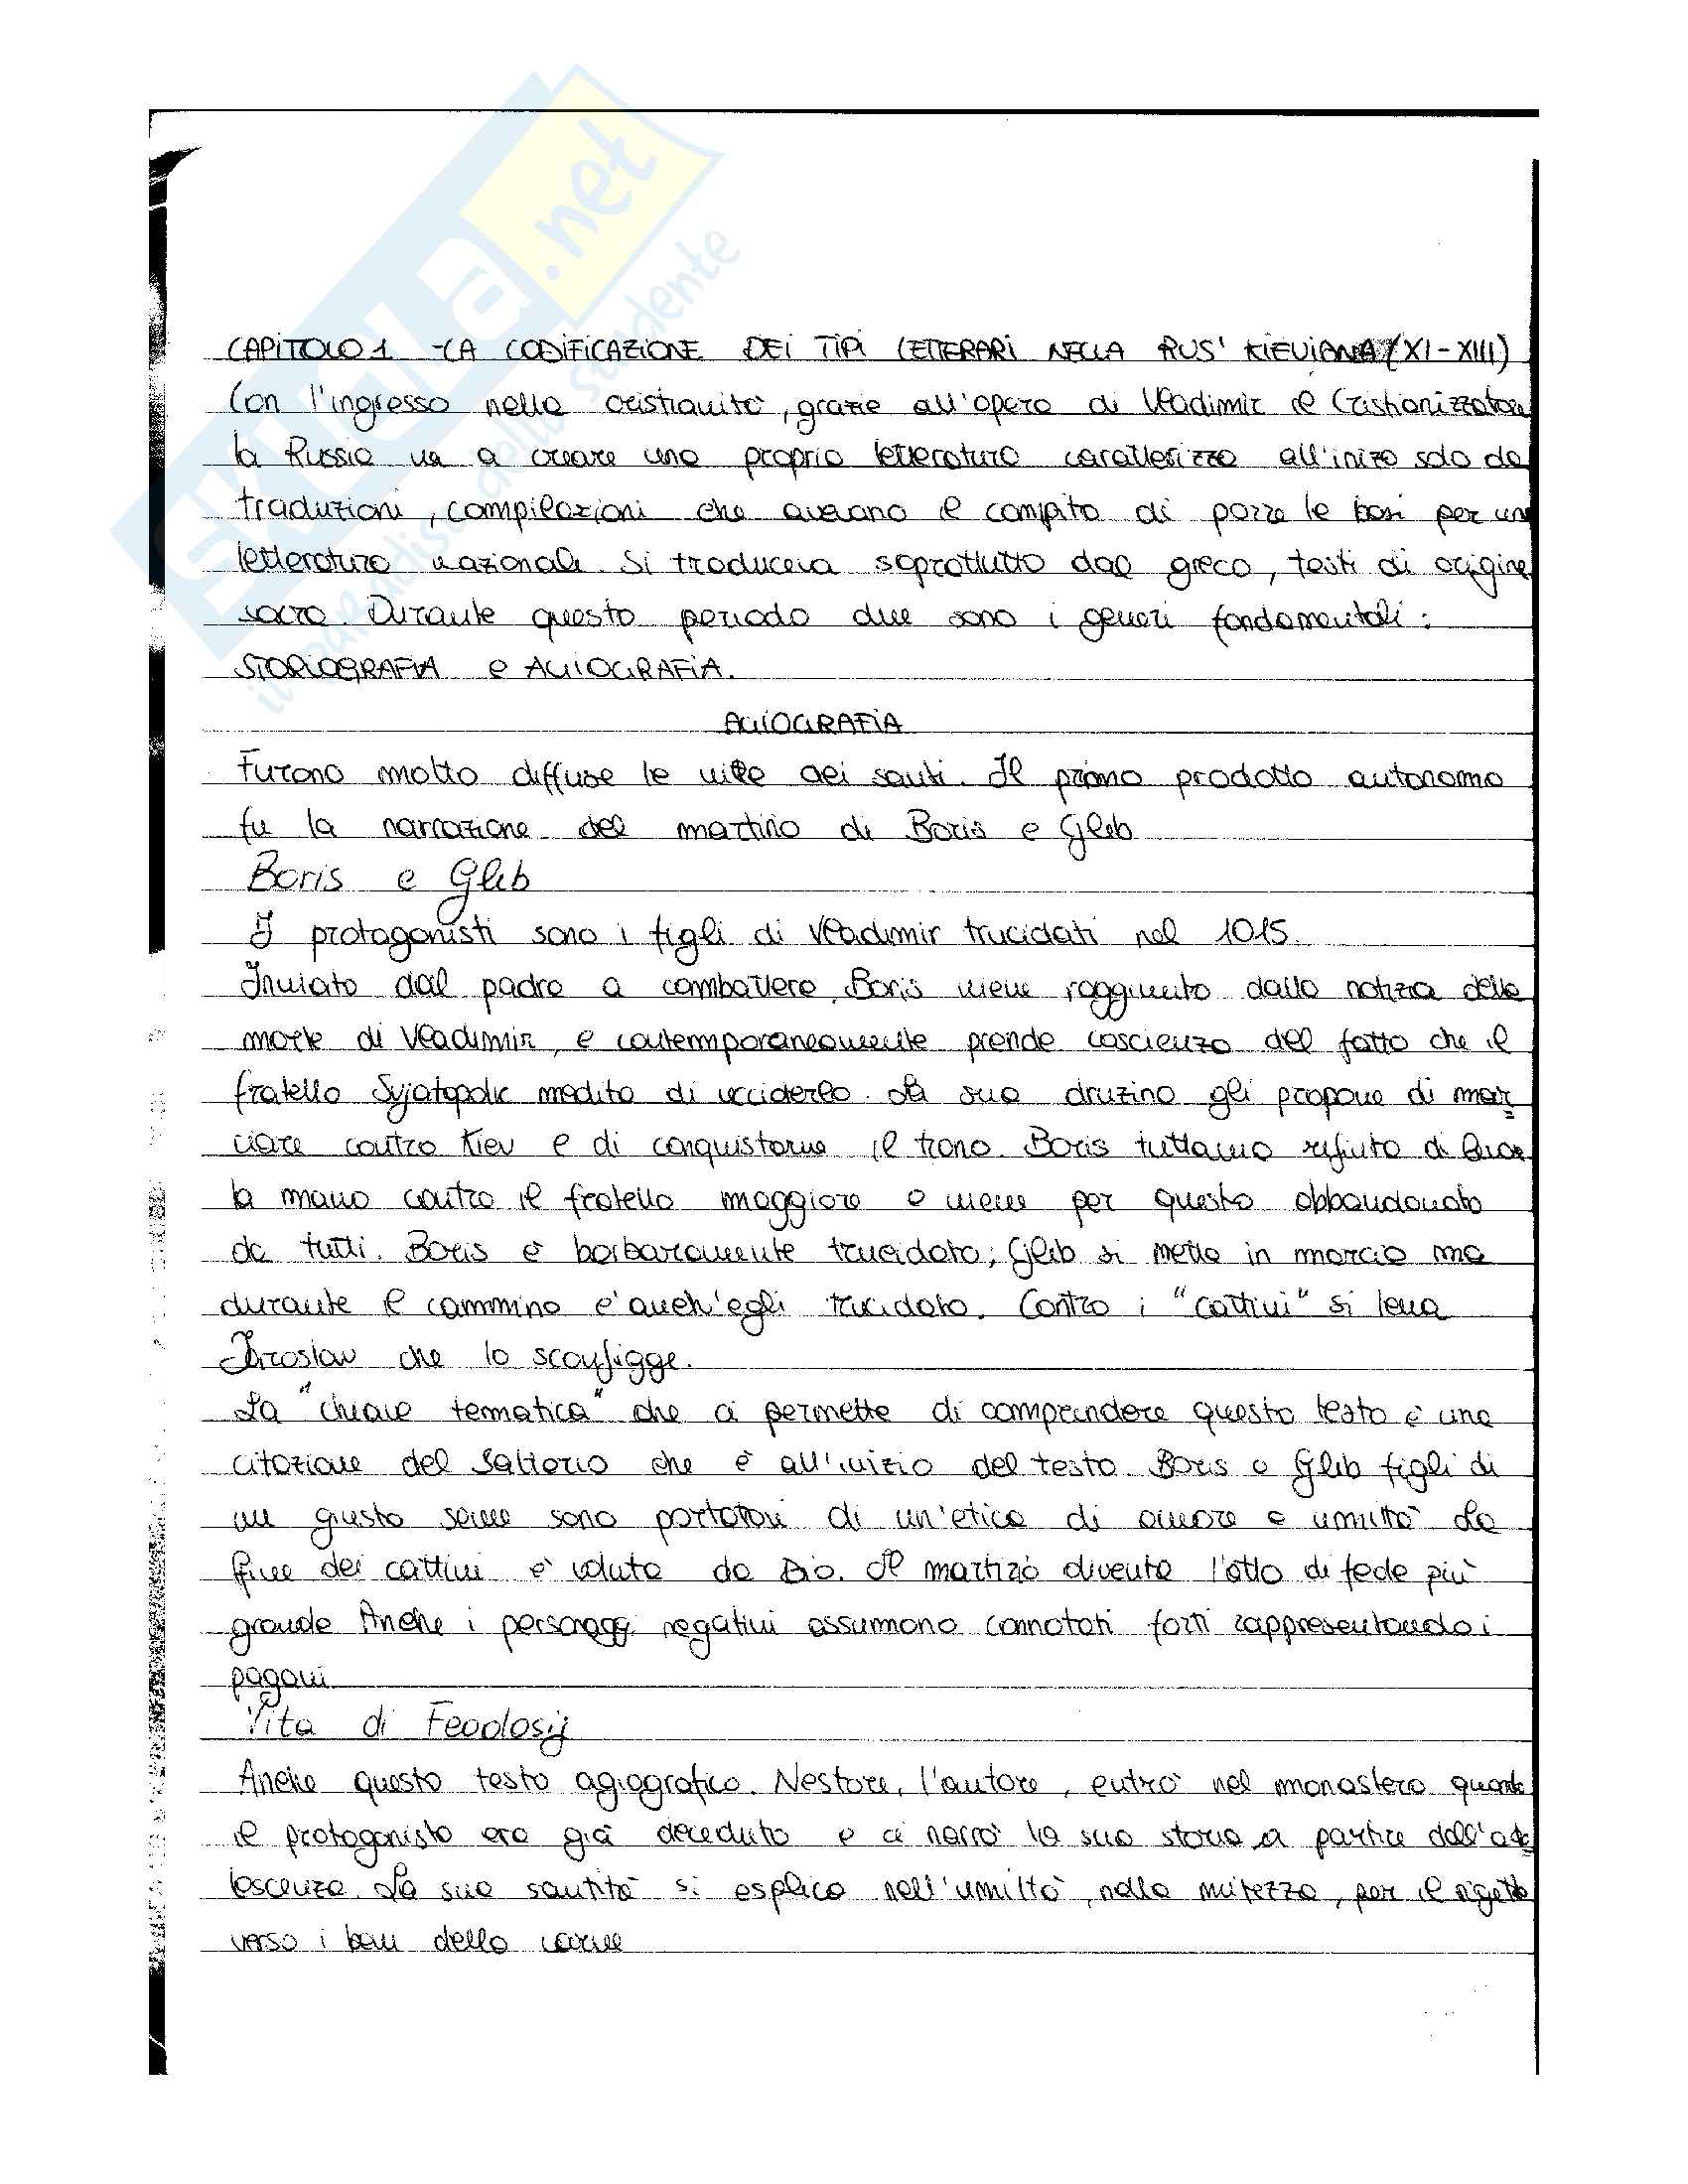 SKUOLA.net
il paradiso dello studente
CAPITOLO 1 - LA CODIFICAZIONE DEI TIPI LETTERARI NELLA RUS' KIEVIANA (XI-XIII)
Con l'ingresso nella cristianità, grazie all'opera di Vladimir il Cristianizzatore
la Russia va a creare una propria letteratura caratterizza all'inizo solo da
traduzioni, compilazioni che avevano il compito di porre le basi per una
letteratura nazionale. Si traduceva soprattutto dal greco, testi di origine
sacra. Durante questo periodo due sono i generi fondamentali:
STORIOGRAFIA e AGIOGRAFIA.
AGIOGRAFIA
Furono molto diffuse le vite dei santi. Il primo prodotto autonomo
fu la narrazione del martirio di Boris e Gleb
Boris e Gleb
I protagonisti sono i figli di Vladimir trucidati nel 1015.
Inviato dal padre a combattere, Boris viene raggiunto dalla notizia della
morte di Vladimir, e contemporaneamente prende coscienza del fatto che il
fratello Svjatopolk medita di ucciderlo. La sua druzina gli propone di mar
ciare contro Kiev e di conquistarne il trono. Boris tuttavia rifiuta di levare
la mano contro il fratello maggiore e viene per questo abbandonato
da tutti. Boris è barbaramente trucidato; Gleb si mette in marcia ma
durante il cammino e' anch'egli trucidato. Contro i "cattivi" si leva
Jaroslav che lo sconfigge.
La "chiave tematica" che ci permette di comprendere questo testo è una
citazione del Salterio che è all'inizio del testo. Boris e Gleb figli di
un giusto seme sono portatori di un'etica di amore e umiltà. La
fine dei cattivi è voluta da Dio. Il martirio diventa l'atto di fede più
grande Anche i personaggi negativi assumono connotati forti rappresentando i
pagani
Vita di Feodosij
Anche questo testo agiografico. Nestore, l'autore, entrò nel monastero quando
il protagonista era già deceduto e ci narrò la sua storia a partire dall'ado
lescenza. La sua santità si esplica nell'umiltà, nella mitezza, per il rigetto
verso i beni della carne